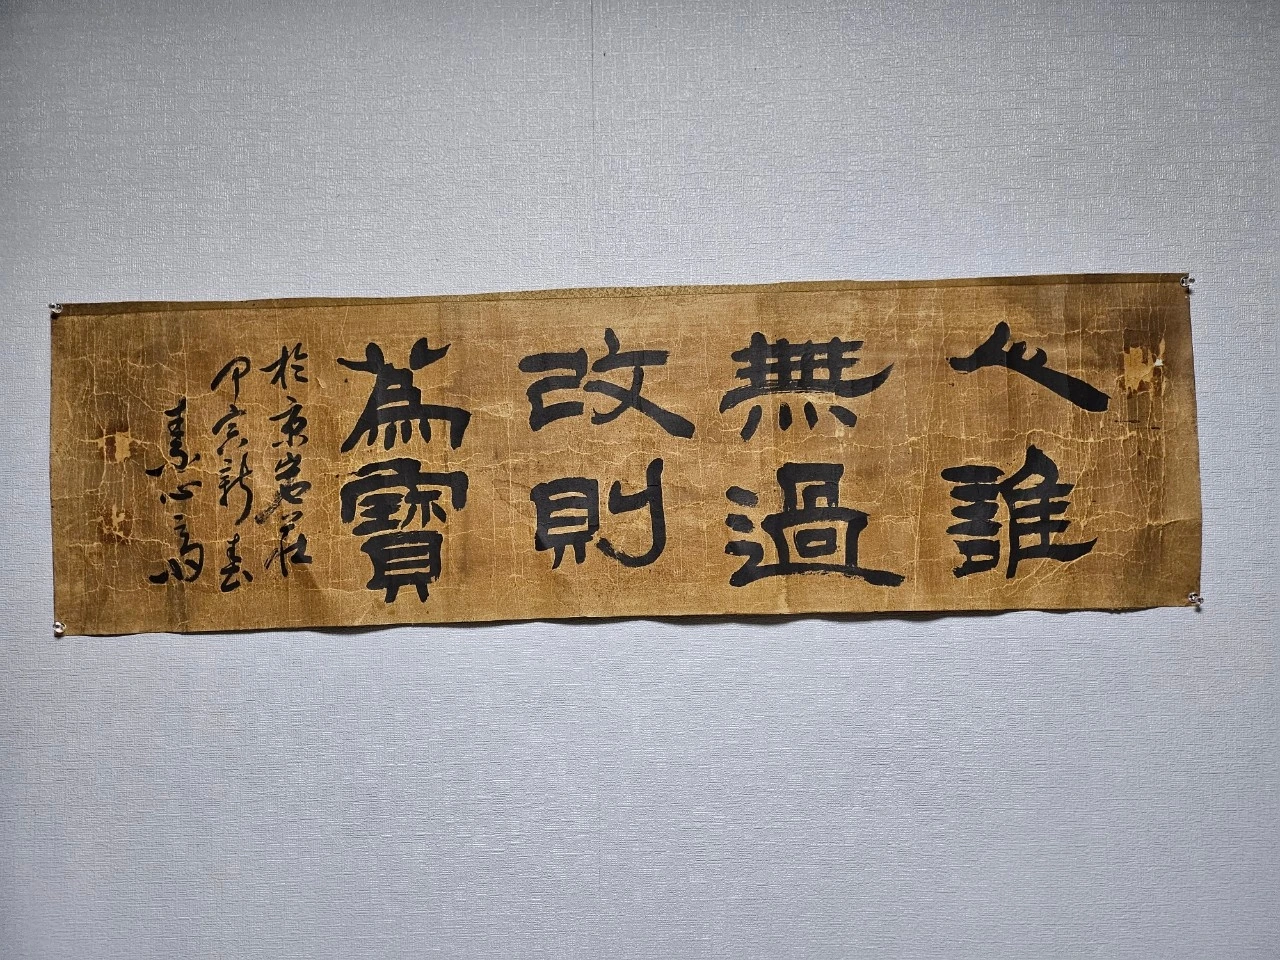 人誰
無過
改則
為寶
於京岩莊
甲寅新春
素心齋